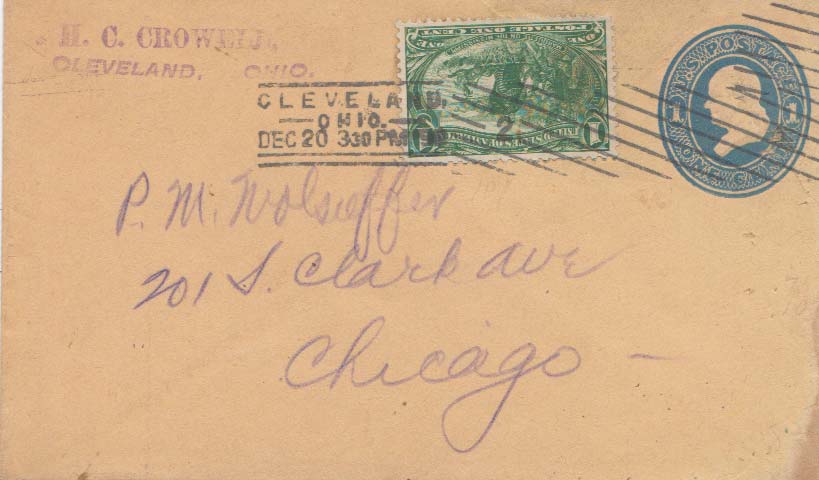 H. C. CROWELL,
CLEVELAND, OHIO.
CLEVELAND,
OHIO.
DEC 20 330 PM
2
1 UNITED STATES OF AMERICA 1
POSTAGE ONE CENT
U.S. POSTAGE
1 1
P. M. Wolsieffer
201 S. Clark Ave
Chicago -